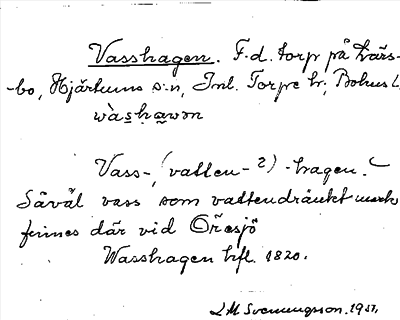 Vasshagen. F.d. torp på Kärs-
-bo, Hjärtums s:n, Inl. Torpe hr; Bohus l.
wàs̱ha̱wɔn
Vass-, (vatten-?) -hagen.
Såväl vass som vattendränkt mark
finnes där vid Öresjö
Wasshagen hfl. 1820.
LM Svenungsson. 1931.